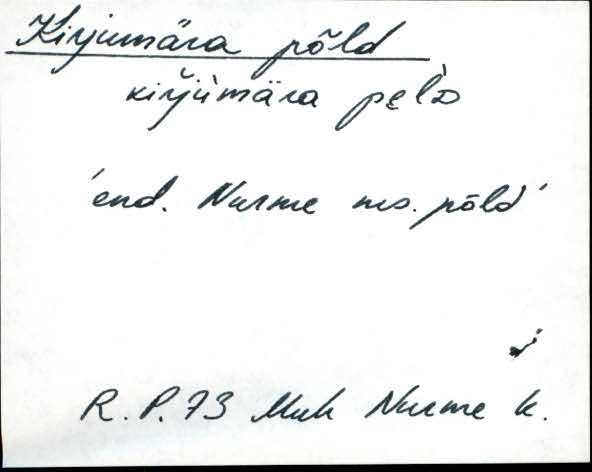 Kirjumära põld
kiŕjùmära pe̮l̀D
'end. Nurme ms. põld'
R. P. 73 Muh Nurme k.